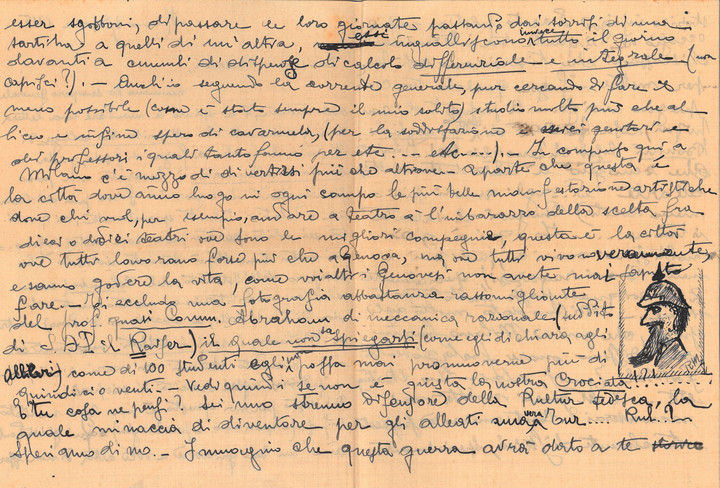 esser sgobboni, di passare le loro giornate passando dai sorrisi di una
sartina a quelli di un'altra, essi ingialliscono invece tutto il giorno
davanti a cumuli di dispense di calcolo differenziale e integrale (non
capisci?). - Anch'io seguendo la corrente generale, pur cercando di fare il
meno possibile (come è stato sempre il mio solito) studio molto più che al
liceo e infine spero di cavarmela, (per la soddisfazione miei genitori e
dei professori i quali tanto fanno per etc.... etc....). - In compenso qui a
Milano c'è mezzo di divertirsi più che altrove. A parte che questa è
la città dove anno luogo in ogni campo le più belle manifestazione artistiche
dove chi vuol, per esempio, andare a teatro à l'imbarazzo della scelta fra
dieci o dodici teatri ove sono le migliori compagnie, questa è la città
ove tutti lavorano forse più che a Genova, ma ove tutti vivono veramente,
e sanno godere la vita, come voialtri Genovesi non avete mai saputo
fare. - Ti accludo una fotografia abbastanza rassomigliante
del prof. Comm. Abraham di meccanica razionale (suddito
di S. M. il Kaiser) il quale non sa spiegarsi (come egli dichiara agli
allievi) come di 100 studenti egli non possa mai promuoverne più di
quindici o venti. - Vedi quindi se non è giusta la nostra Crociata..........
E tu cosa ne pensi? Sei uno strenuo difensore della Kultur tedesca, la
quale minaccia di diventare per gli alleati una vera Tur.... Kul..?
Speriamo di no. - Immagino che questa guerra avrà dato a te